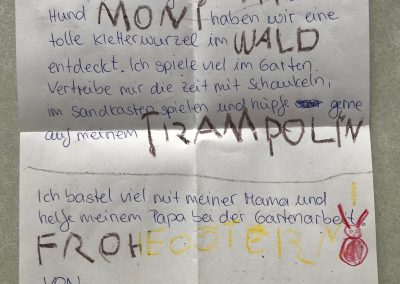 Hund MONI haben wir eine
tolle Kletterwurzel im WALD
entdeckt. Ich spiele viel im Garten.
Vertreibe mir die Zeit mit Schaukeln,
im Sandkasten spielen und hüpfe gerne
auf meinem TRAMPOLIN
Ich bastel viel mit meiner Mama und
helfe meinem Papa bei der Gartenarbeit!
FROHE OSTERN!